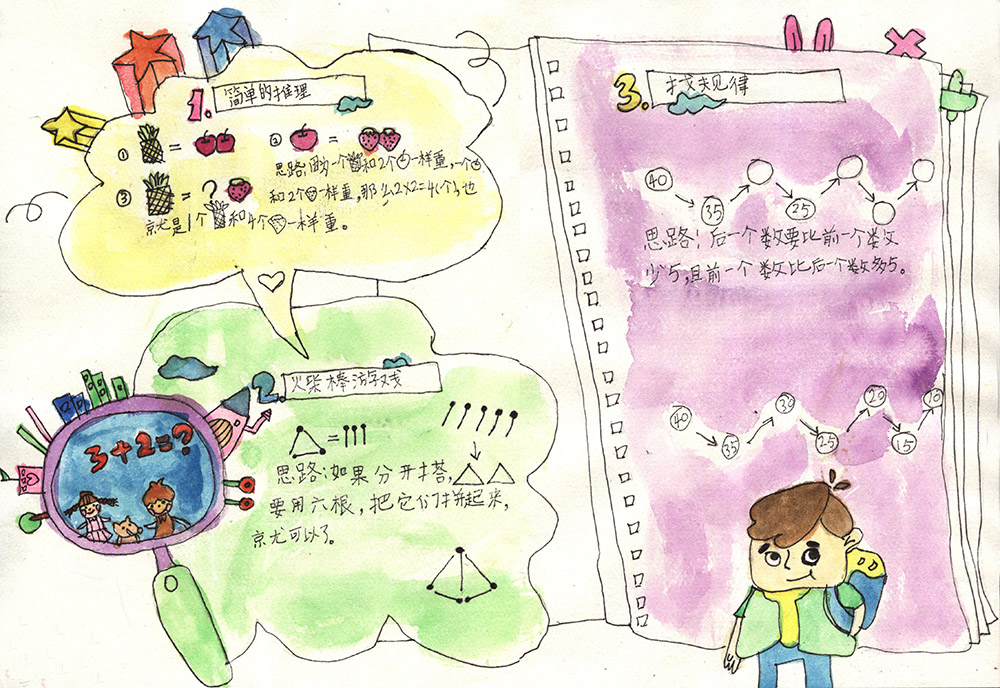 1. 简单的推理
① = ② =
思路:因为一个和2个一样重,一个
③ = ? 和2个一样重,那么2×2=4(个),也
就是1个和4个一样重。
2. 火柴棒游戏
=
思路:如果分开搭,
要用六根,把它们拼起来,
就可以了。
3+2=?
3. 找规律
40 35 25
思路:后一个数要比前一个数
少5,且前一个数比后一个数多5。
40 35 30 25 20 15 10